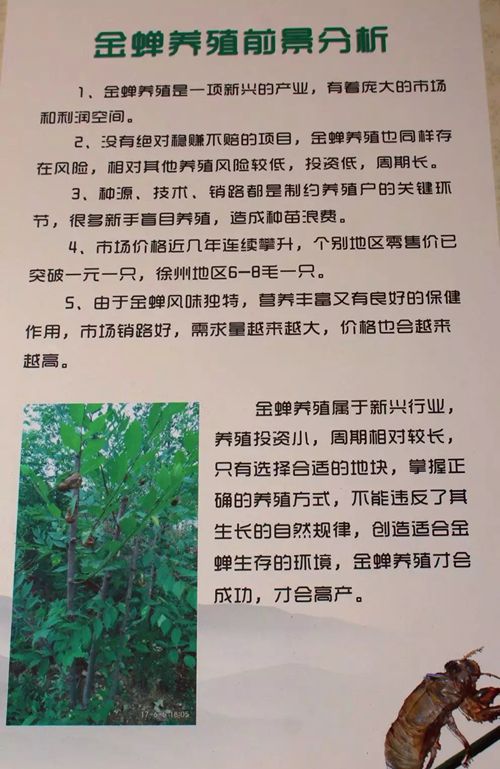 金蝉养殖前景分析
1、金蝉养殖是一项新兴的产业，有着庞大的市场
和利润空间。
2、没有绝对稳赚不赔的项目，金蝉养殖也同样存
在风险，相对其他养殖风险较低，投资低，周期长。
3、种源、技术、销路都是制约养殖户的关键环
节，很多新手盲目养殖，造成种苗浪费。
4、市场价格近几年连续攀升，个别地区零售价已
突破一元一只，徐州地区6-8毛一只。
5、由于金蝉风味独特，营养丰富又有良好的保健
作用，市场销路好，需求量越来越大，价格也会越来
越高。
金蝉养殖属于新兴行业，
养殖投资小，周期相对较长，
只有选择合适的地块，掌握正
确的养殖方式，不能违反了其
生长的自然规律，创造适合金
蝉生存的环境，金蝉养殖才会
成功，才会高产。